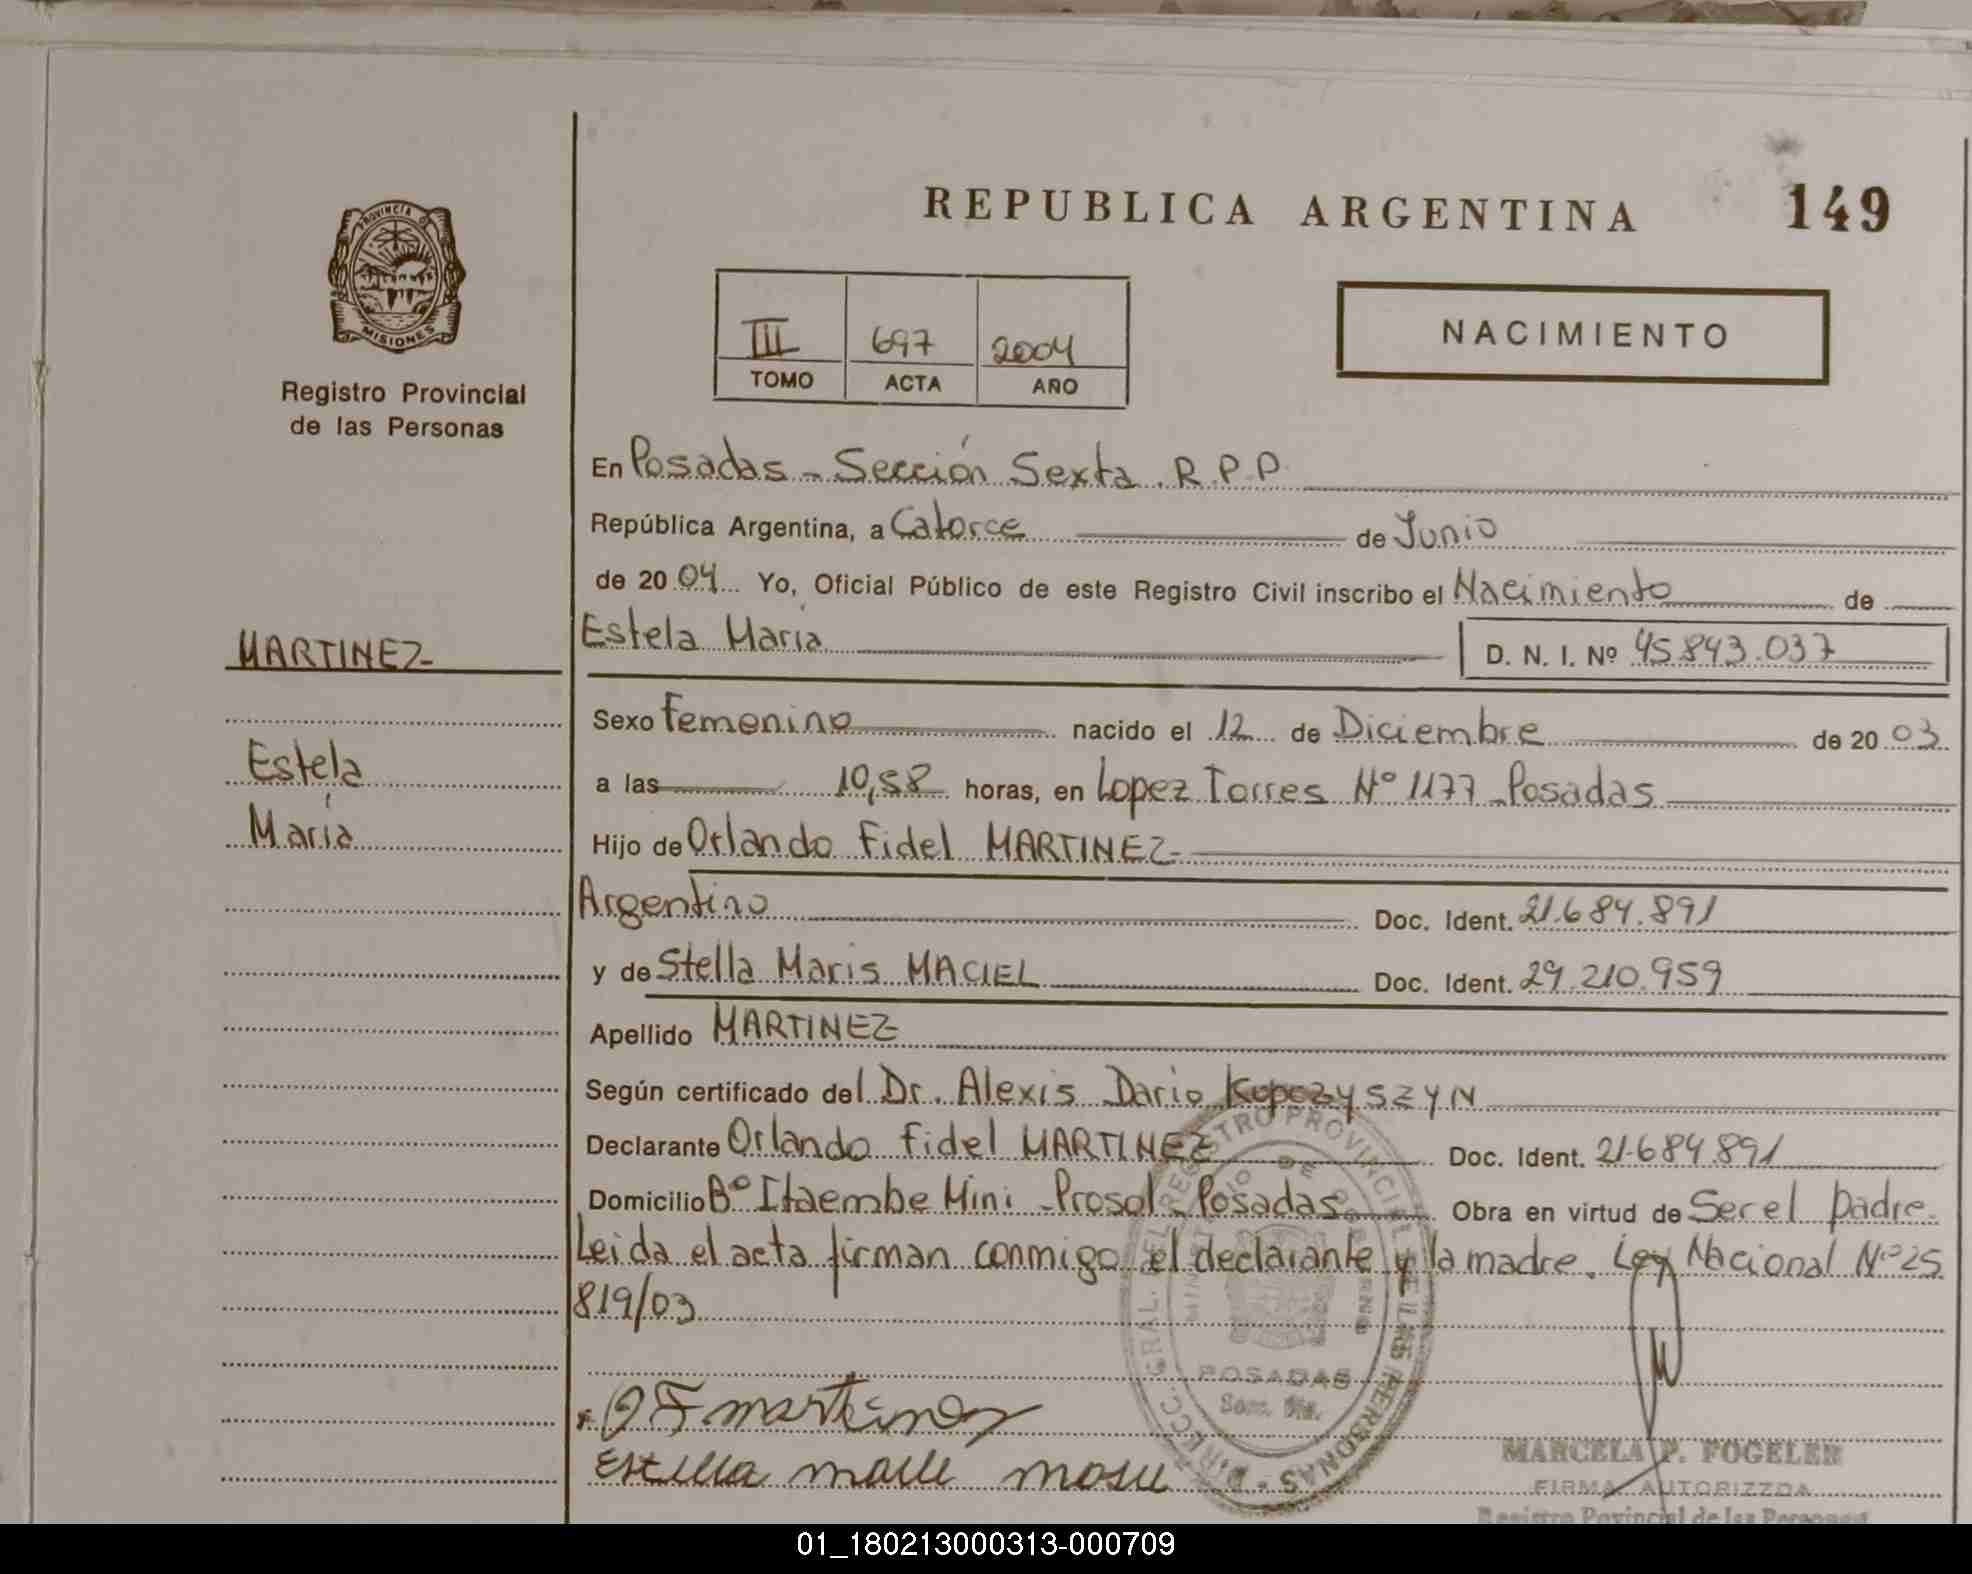 REPUBLICA ARGENTINA 149
PROVINCIA DE
MISIONES
Registro Provincial
de las Personas
NACIMIENTO
III 697 2004
TOMO ACTA AÑO
En Posadas - Sección Sexta. R.P.P.
República Argentina, a Catorce de Junio
de 2004 Yo, Oficial Público de este Registro Civil inscribo el Nacimiento de
MARTINEZ
Estela María D. N. I. Nº 45.843.037
Sexo Femenino nacido el 12 de Diciembre de 2003
Estela
a las 10,58 horas, en Lopez Torres Nº 1177 - Posadas
María
Hijo de Orlando Fidel MARTINEZ
Argentino Doc. Ident. 21.684.891
y de Stella Maris MACIEL Doc. Ident. 29.210.959
Apellido MARTINEZ
Según certificado del Dr. Alexis Dario
Declarante Orlando Fidel MARTINEZ Doc. Ident. 21.684.891
Domicilio Bº Itaembe Mini - Prosol - Posadas Obra en virtud de Ser el padre.
Leida el acta firman conmigo el declarante y la madre. Ley Nacional Nº 25
819/03
DIRECC. GRAL. DEL REGISTRO PROVINCIAL DE LAS PERSONAS
MINISTERIO DE GOBIERNO
POSADAS
O F martinez
MARCELA P. FOGELER
FIRMA AUTORIZZDA
Registro Povincial de las Personas
01_180213000313-000709